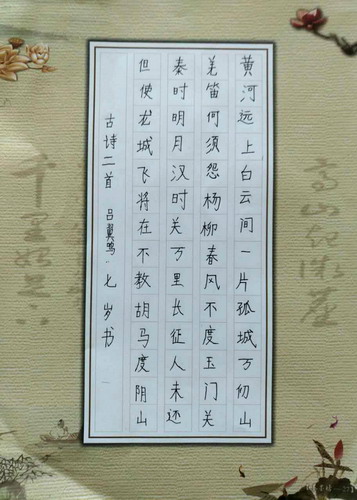 黄河远上白云间一片孤城万仞山
羌笛何须怨杨柳春风不度玉门关
秦时明月汉时关万里长征人未还
但使龙城飞将在不教胡马度阴山
古诗二首 吕翼鸣 七岁书